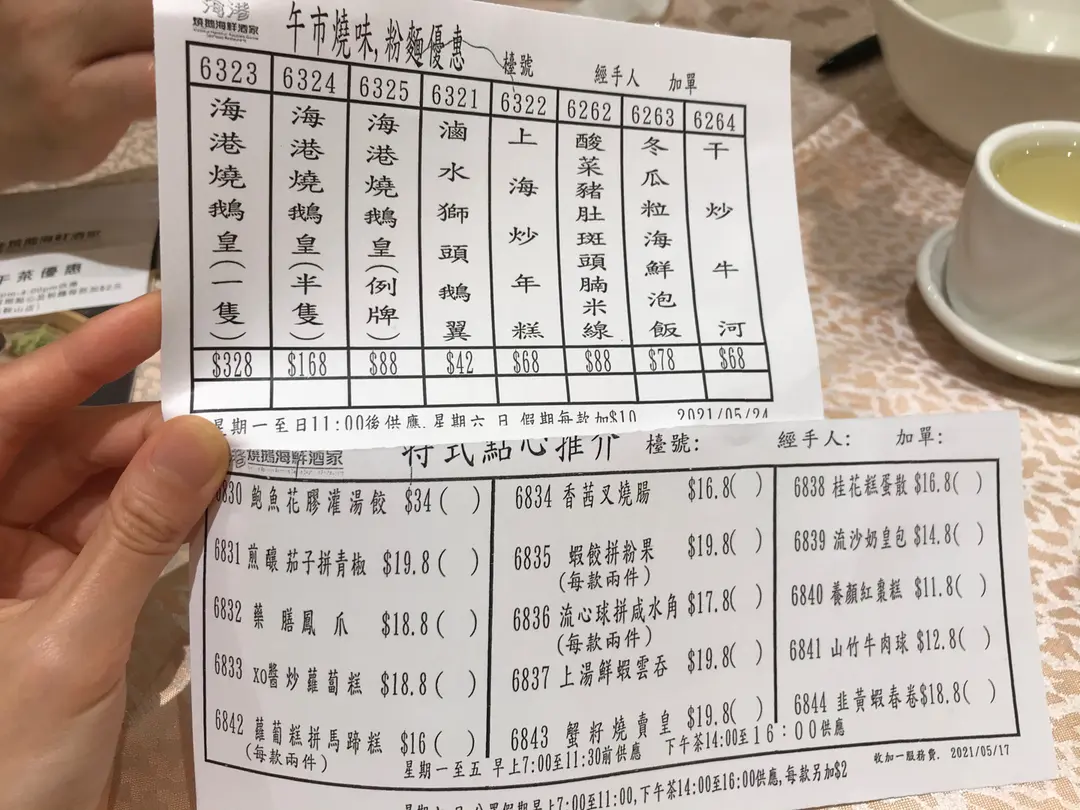 海港
燒鵝海鮮酒家
午市燒味,粉麵優惠 檯號 經手人 加單
6323 6324 6325 6321 6322 6262 6263 6264
海港燒鵝皇(一隻)
海港燒鵝皇(半隻)
海港燒鵝皇(例牌)
滷水獅頭鵝翼
上海炒年糕
酸菜豬肚斑頭腩米線
冬瓜粒海鮮泡飯
干炒牛河
$328 $168 $88 $42 $68 $88 $78 $68
星期一至日11:00後供應,星期六 日 假期每款加$10 2021/05/24
港燒鵝海鮮酒家 特式點心推介 檯號: 經手人: 加單:
6830 鮑魚花膠灌湯餃 $34( )
6831 煎釀茄子拼青椒 $19.8( )
6832 藥膳鳳爪 $18.8( )
6833 XO醬炒蘿蔔糕 $18.8( )
6842 蘿蔔糕拼馬蹄糕 $16( )
(每款兩件)
6834 香茜叉燒腸 $16.8( )
6835 蝦餃拼粉果 $19.8( )
(每款兩件)
6836 流心球拼咸水角 $17.8( )
(每款兩件)
6837 上湯鮮蝦雲吞 $19.8( )
6843 蟹籽燒賣皇 $19.8( )
6838 桂花糕蛋散 $16.8( )
6839 流沙奶皇包 $14.8( )
6840 養顏紅棗糕 $11.8( )
6841 山竹牛肉球 $12.8( )
6844 韭黃蝦春卷 $18.8( )
星期一至五 早上7:00至11:30前供應 下午茶14:00至16:00供應
收加一服務費. 2021/05/17
公眾假期早上7:00至11:00,下午茶14:00至16:00供應,每款另加$2
燒鵝海鮮酒家
午茶優惠